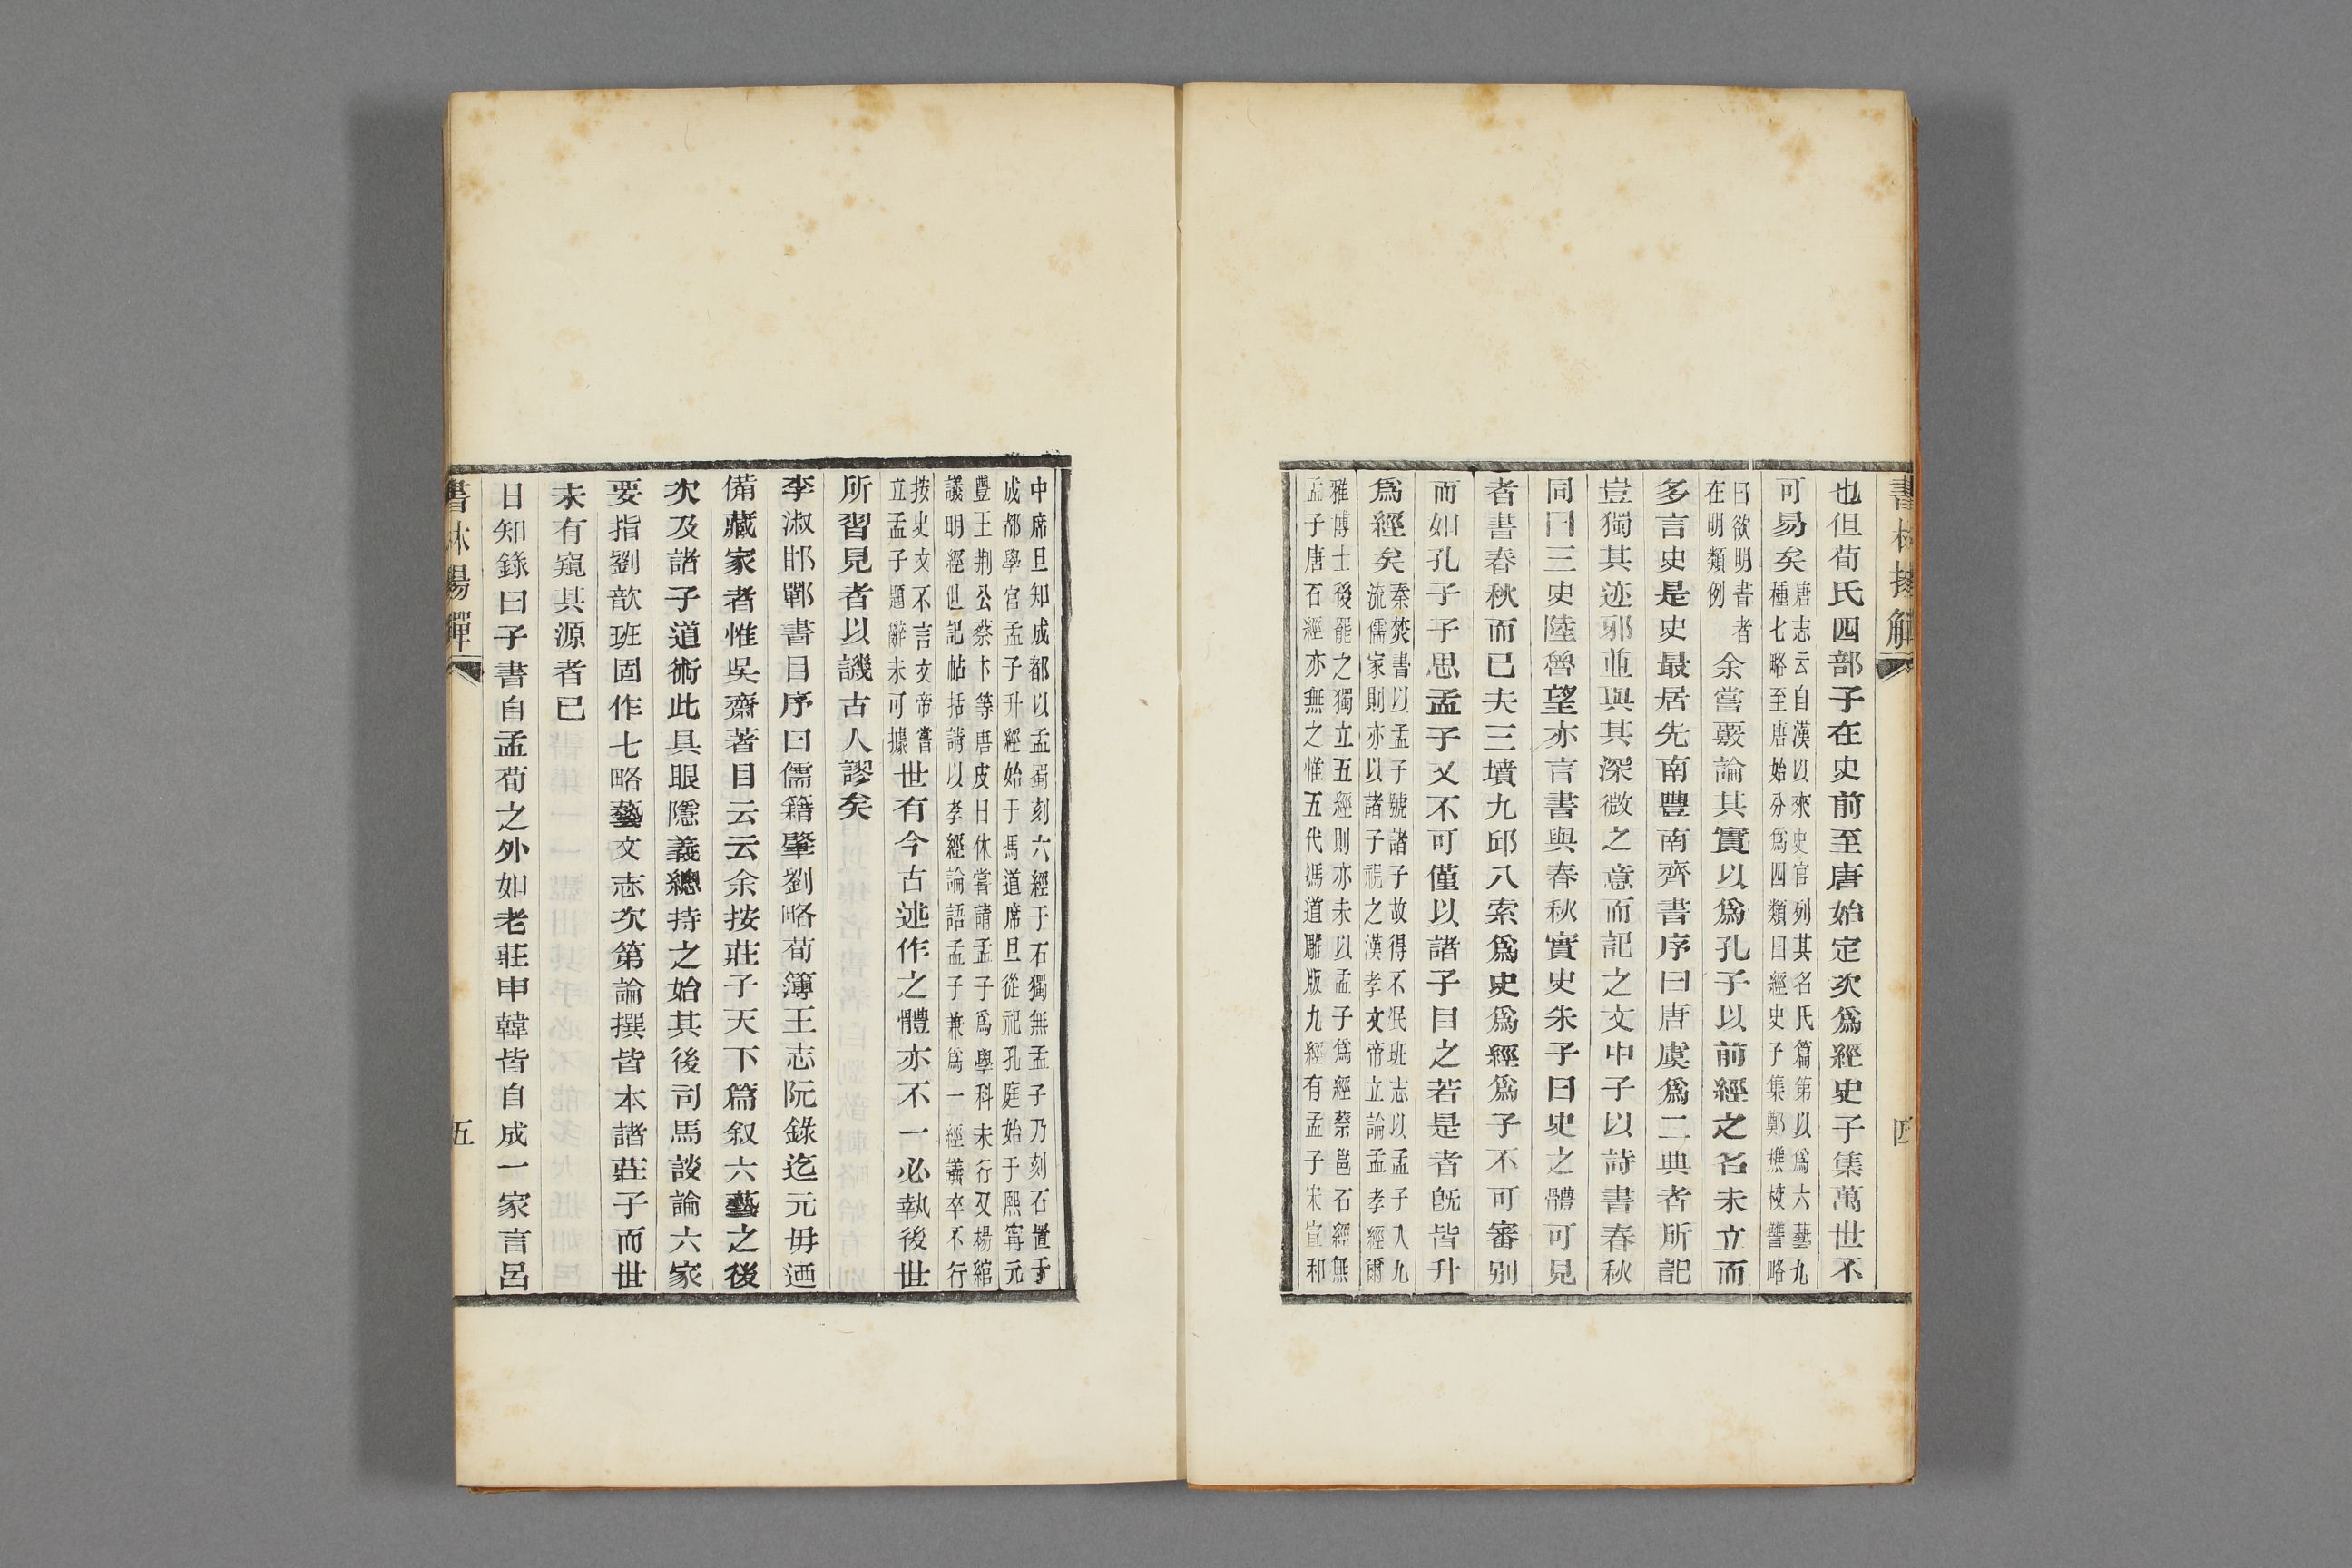 也但荀氏四部子在史前至唐始定次爲經史子集萬世不
可易矣唐志云自漢以來史官列其名氏篇第以爲六藝九
種七略至唐始分爲四類曰經史子集鄭樵校讐略
曰欲明書者
在明類例余嘗覈論其實以爲孔子以前經之名未立而
多言史是史最居先南豐南齊書序曰唐虞爲二典者所記
豈獨其迹邪並與其深微之意而記之文中子以詩書春秋
同曰三史陸魯望亦言書與春秋實史朱子曰史之體可見
者書春秋而已夫三墳九邱八索爲史爲經爲子不可審別
而如孔子子思孟子又不可僅以諸子目之若是者旣皆升
爲經矣秦焚書以孟子號諸子故得不泯班志以孟子入九
流儒家則亦以諸子視之漢孝文帝立論孟孝經爾
雅博士後罷之獨立五經則亦未以孟子爲經蔡邕石經無
孟子唐石經亦無之惟五代馮道雕版九經有孟子宋宣和
書林揚觶
四
中席旦知成都以孟蜀刻六經于石獨無孟子乃刻石置于
成都學官孟子升經始于馮道席旦從祀孔庭始于熙寗元
豐王荆公蔡卞等唐皮日休嘗請孟子爲學科未行又楊綰
議明經但記帖括請以孝經論語孟子兼爲一經議卒不行
按史文不言文帝嘗
立孟子題辭未可據世有今古述作之體亦不一必執後世
所習見者以譏古人謬矣
李淑邯鄲書目序曰儒籍肇劉略荀簿王志阮錄迄元毋迺
備藏家者惟吳齋著目云云余按莊子天下篇叙六藝之後
次及諸子道術此具眼隱義總持之始其後司馬談論六家
要指劉歆班固作七略藝文志次第論撰皆本諸莊子而世
未有窺其源者已
日知錄曰子書自孟荀之外如老莊申韓皆自成一家言呂
書林揚觶
五